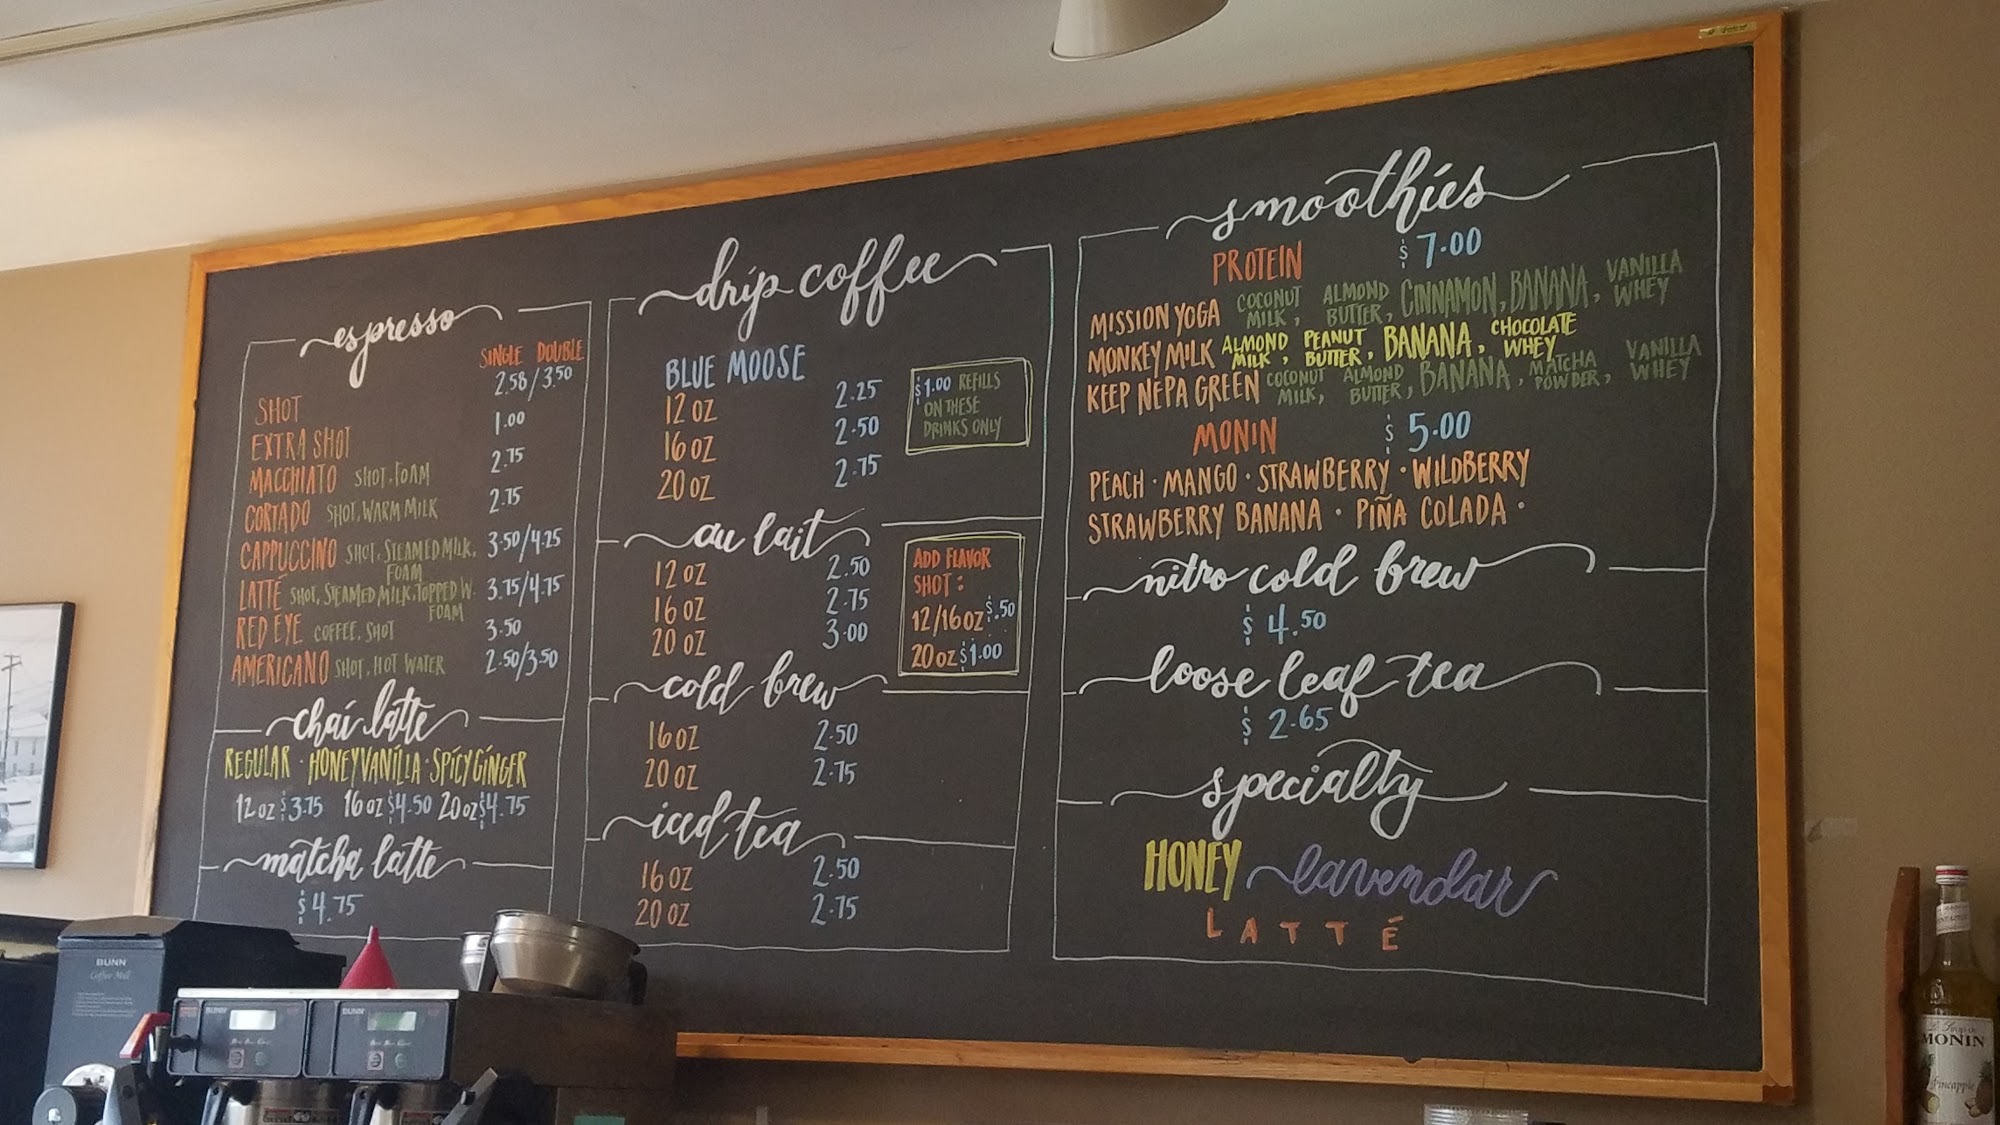 espresso
SINGLE DOUBLE
SHOT 2.58/3.50
EXTRA SHOT 1.00
MACCHIATO SHOT, FOAM 2.75
CORTADO SHOT, WARM MILK 2.75
CAPPUCCINO SHOT, STEAMED MILK, FOAM 3.50/4.25
LATTÉ SHOT, STEAMED MILK, TOPPED W. FOAM 3.75/4.75
RED EYE COFFEE, SHOT 3.50
AMERICANO SHOT, HOT WATER 2.50/3.50
chai latte
REGULAR · HONEY VANILLA · SPICY GINGER
12 oz $3.75 16 oz $4.50 20 oz $4.75
matcha latte
$4.75
drip coffee
BLUE MOOSE
12 OZ 2.25
16 OZ 2.50
20 OZ 2.75
$1.00 REFILLS
ON THESE
DRINKS ONLY
au lait
12 OZ 2.50
16 OZ 2.75
20 OZ 3.00
ADD FLAVOR
SHOT:
12/16 OZ $.50
20 OZ $1.00
cold brew
16 OZ 2.50
20 OZ 2.75
iced tea
16 OZ 2.50
20 OZ 2.75
smoothies
PROTEIN $7.00
MISSION YOGA COCONUT MILK, ALMOND BUTTER, CINNAMON, BANANA, VANILLA WHEY
MONKEY MILK ALMOND MILK, PEANUT BUTTER, BANANA, CHOCOLATE WHEY
KEEP NEPA GREEN COCONUT MILK, ALMOND BUTTER, BANANA, MATCHA POWDER, VANILLA WHEY
MONIN $5.00
PEACH · MANGO · STRAWBERRY · WILDBERRY
STRAWBERRY BANANA · PIÑA COLADA ·
nitro cold brew
$4.50
loose leaf tea
$2.65
specialty
HONEY lavendar
LATTÉ
BUNN
Coffee Mill
BUNN
BUNN
MONIN
Pineapple